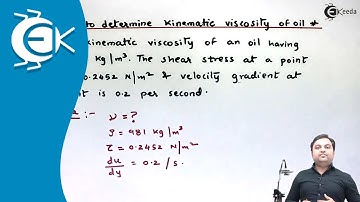 to determine Kinematic Viscosity of oil *
Ekeeda
kinematic viscosity of an oil having
kg/m³. The shear stress at a point
0.2452 N/m² & velocity gradient at
t is 0.2 per second.
:-
ν = ?
ρ = 981 kg/m³
τ = 0.2452 N/m²
du/dy = 0.2 /s.